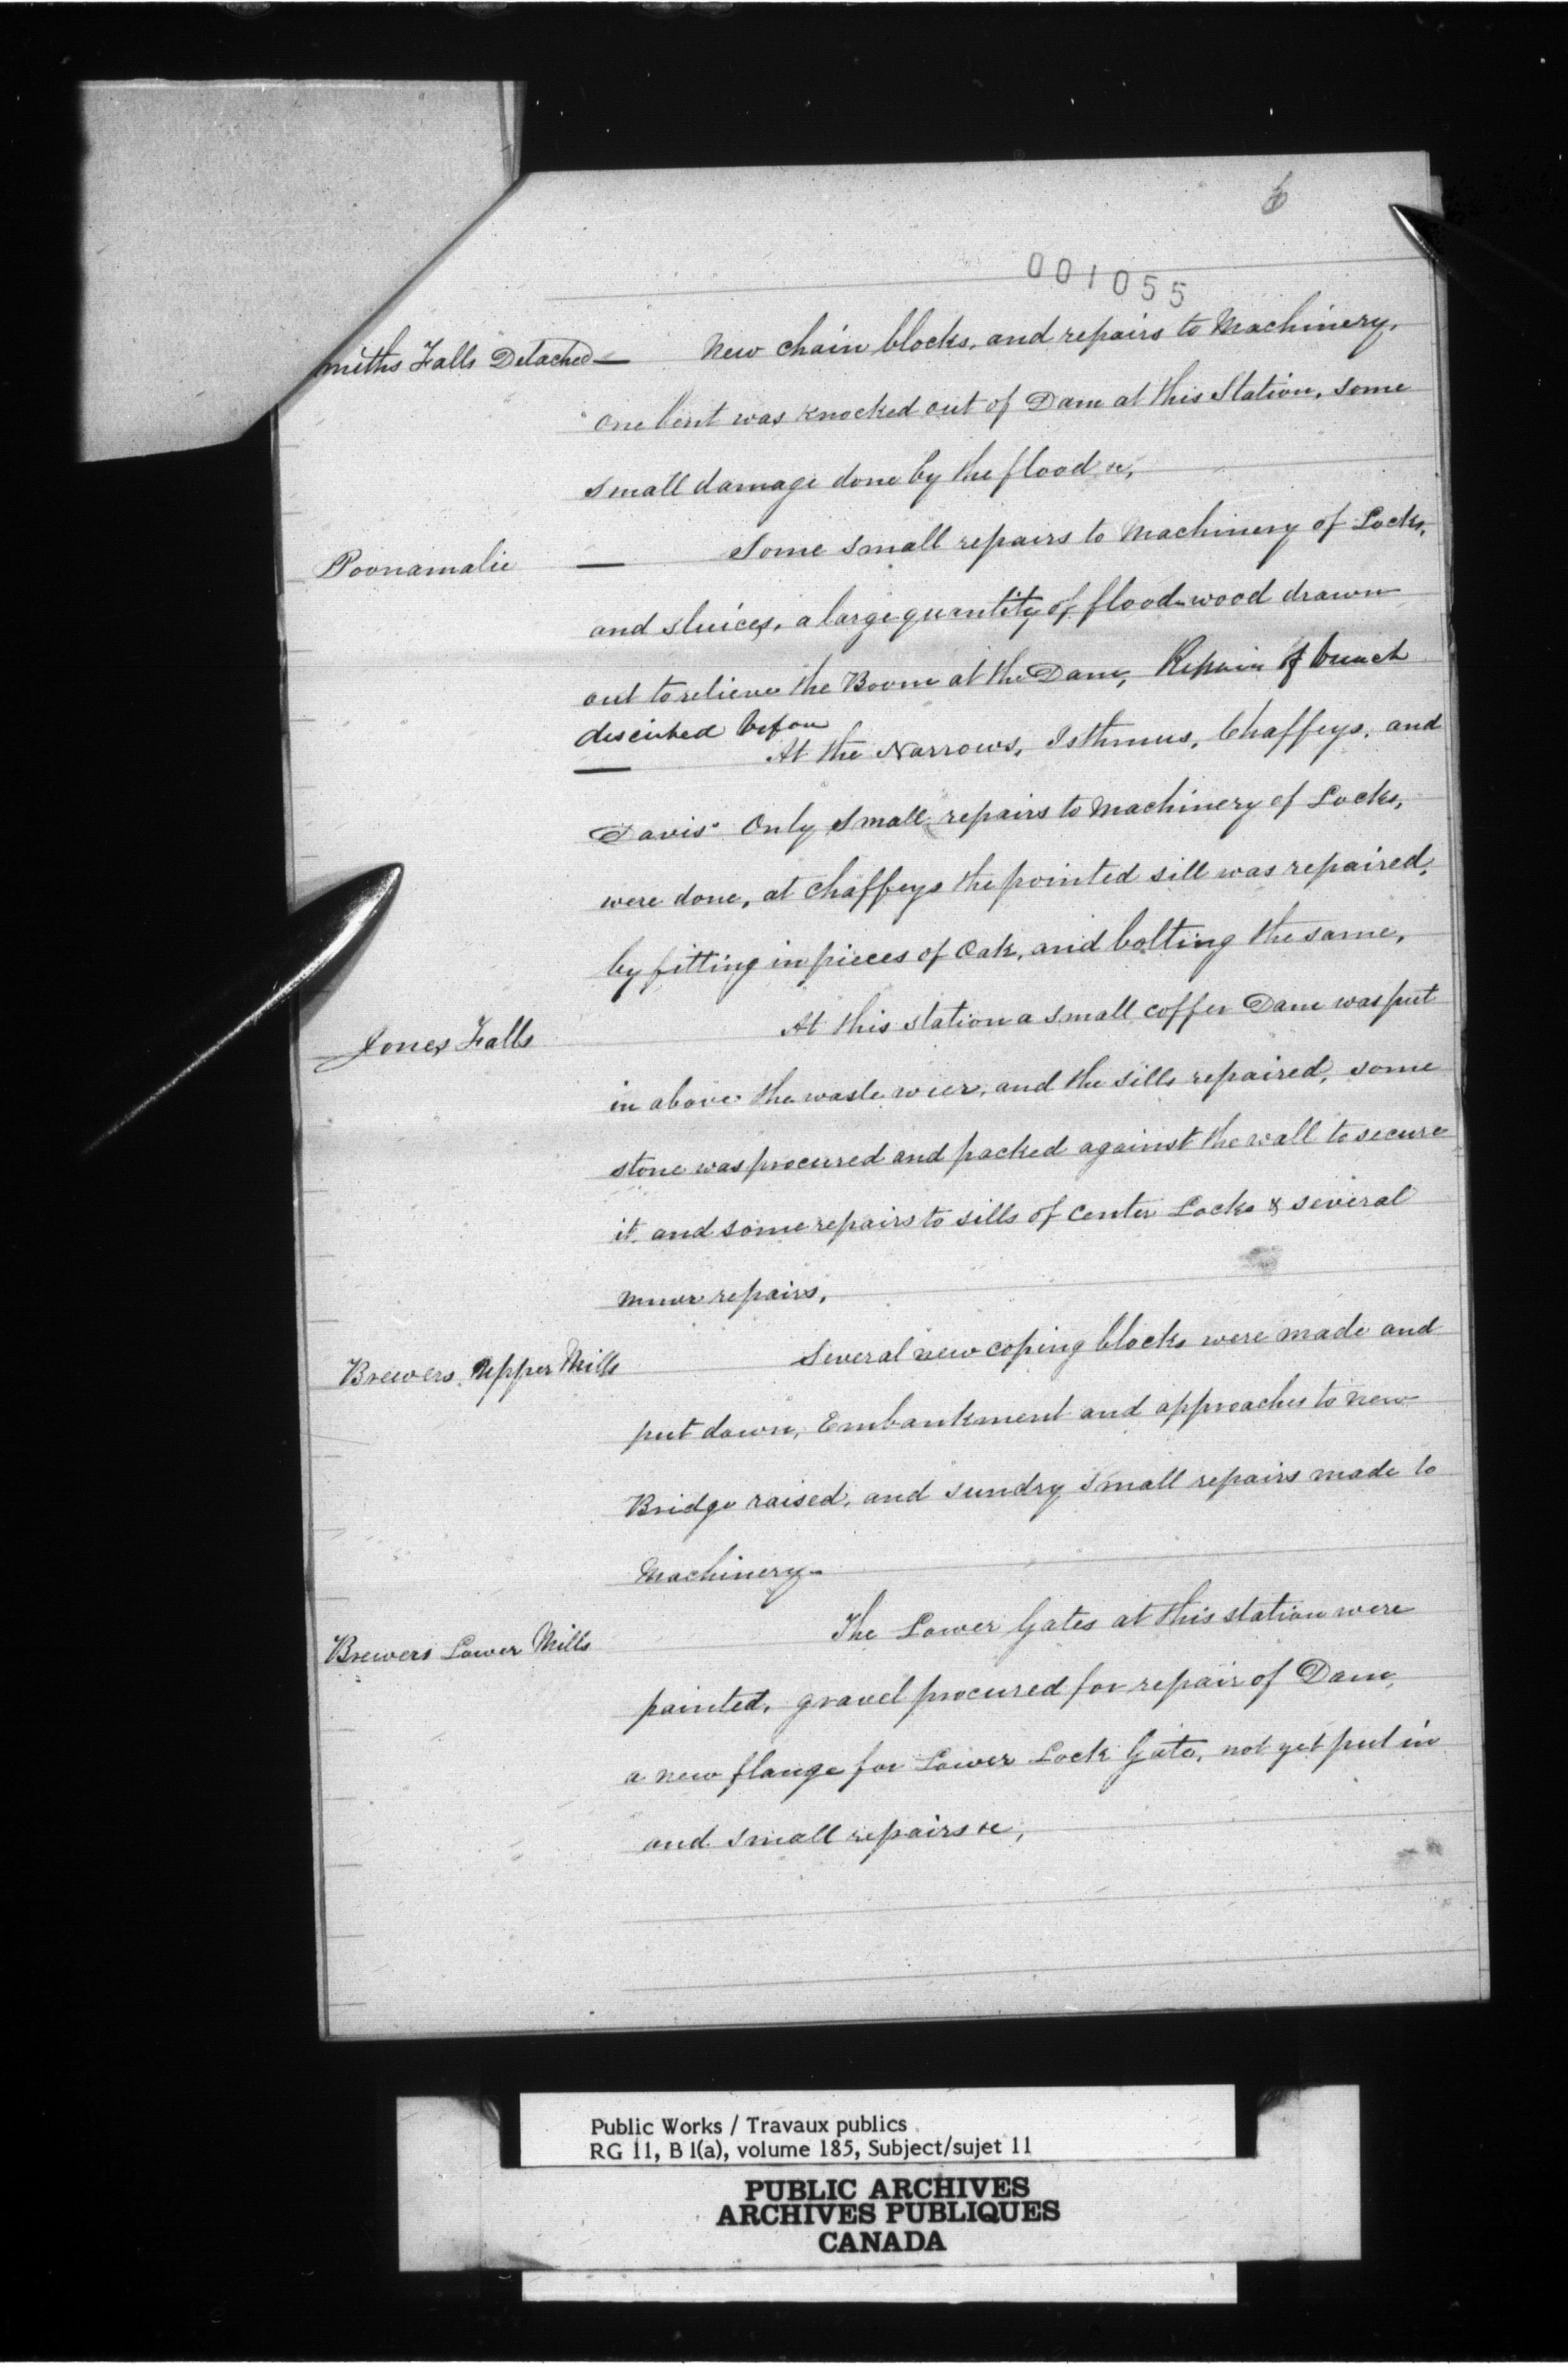 6
001055
miths Falls Detached — New chain blocks, and repairs to Machinery,
one bent was knocked out of Dam at this Station, some
small damage done by the flood &c,
Poonamalie — Some small repairs to Machinery of Locks,
and sluices, a large quantity of flood-wood drawn
out to relieve the Boom at the Dam, Repair of breach
described before
— At the Narrows, Isthmus, Chaffeys, and
Davis' Only small repairs to Machinery of Locks,
were done, at Chaffeys the pointed sill was repaired,
by fitting in pieces of Oak, and bolting the same,
Jones Falls At this station a small coffer Dam was put
in above the waste wier, and the sills repaired, some
stone was procured and packed against the wall to secure
it. and some repairs to sills of Center Locks & several
minor repairs,
Brewers Upper Mills Several new coping blocks were made and
put down, Embankment and approaches to new
Bridge raised, and sundry small repairs made to
Machinery-
Brewers Lower Mills The Lower Gates at this station were
painted, gravel procured for repair of Dam,
a new flange for Lower Lock Gate, not yet put in
and small repairs &c,
Public Works / Travaux publics
RG 11, B 1(a), volume 185, Subject/sujet 11
PUBLIC ARCHIVES
ARCHIVES PUBLIQUES
CANADA